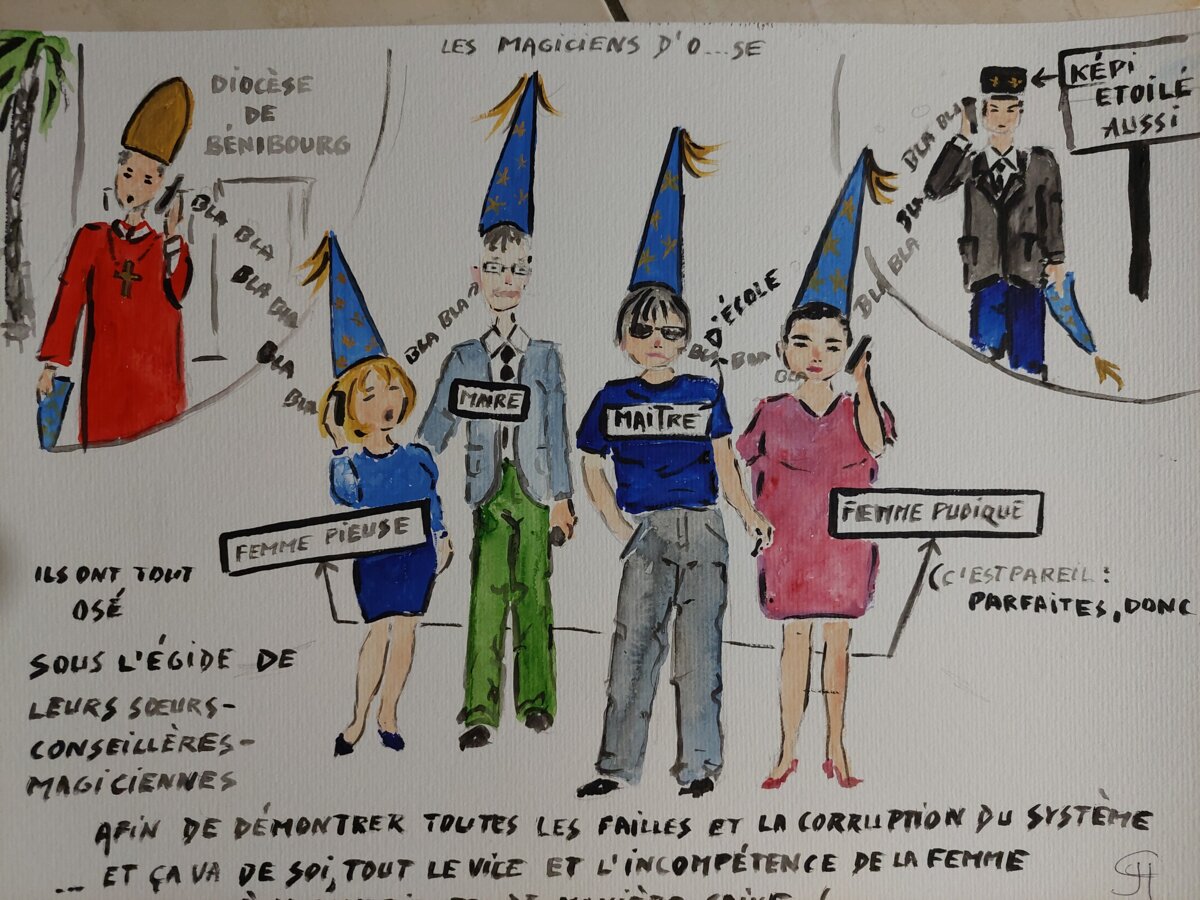 LES MAGICIENS D'O...SE
DIOCÈSE
DE
BÉNIBOURG
KÉPI
ETOILÉ
AUSSI
BLA
BLA
BLA
BLA
BLA
BLA
BLA
BLA BLA
BLA
BLA
BLA
BLA
BLA
BLA
BLA
BLA
MAIRE
MAITRE
D'ÉCOLE
FEMME PIEUSE
FEMME PUDIQUE
(C'EST PAREIL :
PARFAITES, DONC
ILS ONT TOUT
OSÉ
SOUS L'ÉGIDE DE
LEURS SŒURS-
CONSEILLÈRES-
MAGICIENNES
AFIN DE DÉMONTRER TOUTES LES FAILLES ET LA CORRUPTION DU SYSTÈME
... ET ÇA VA DE SOI, TOUT LE VICE ET L'INCOMPÉTENCE DE LA FEMME